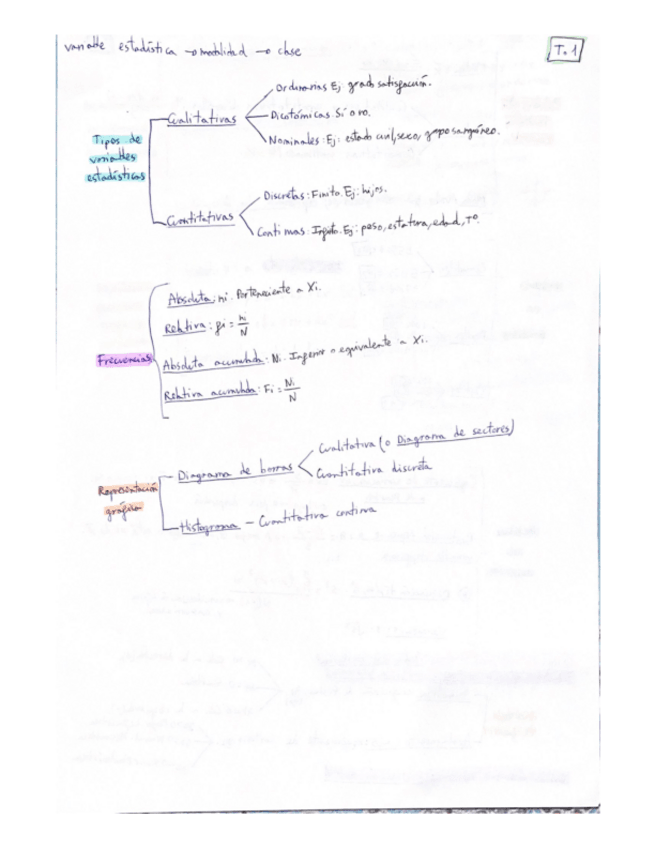 variable estadística → modalidad → clase
T.1
Tipos de variables estadísticas
Cualitativas
Ordinarias Ej: grado satisfacción.
Dicotómicas: Sí o no.
Nominales: Ej: estado civil, sexo, grupo sanguíneo.
Cuantitativas
Discretas: Finito. Ej: hijos.
Continuas: Ej: peso, estatura, edad, Tº.
Frecuencias
Absoluta: ni. Perteneciente a Xi.
Relativa: fi = ni/N
Absoluta acumulada: Ni. Inferior o equivalente a Xi.
Relativa acumulada: Fi = Ni/N
Representación gráfica
Diagrama de barras
Cualitativa (o Diagrama de sectores)
Cuantitativa discreta
Histograma - Cuantitativa continua